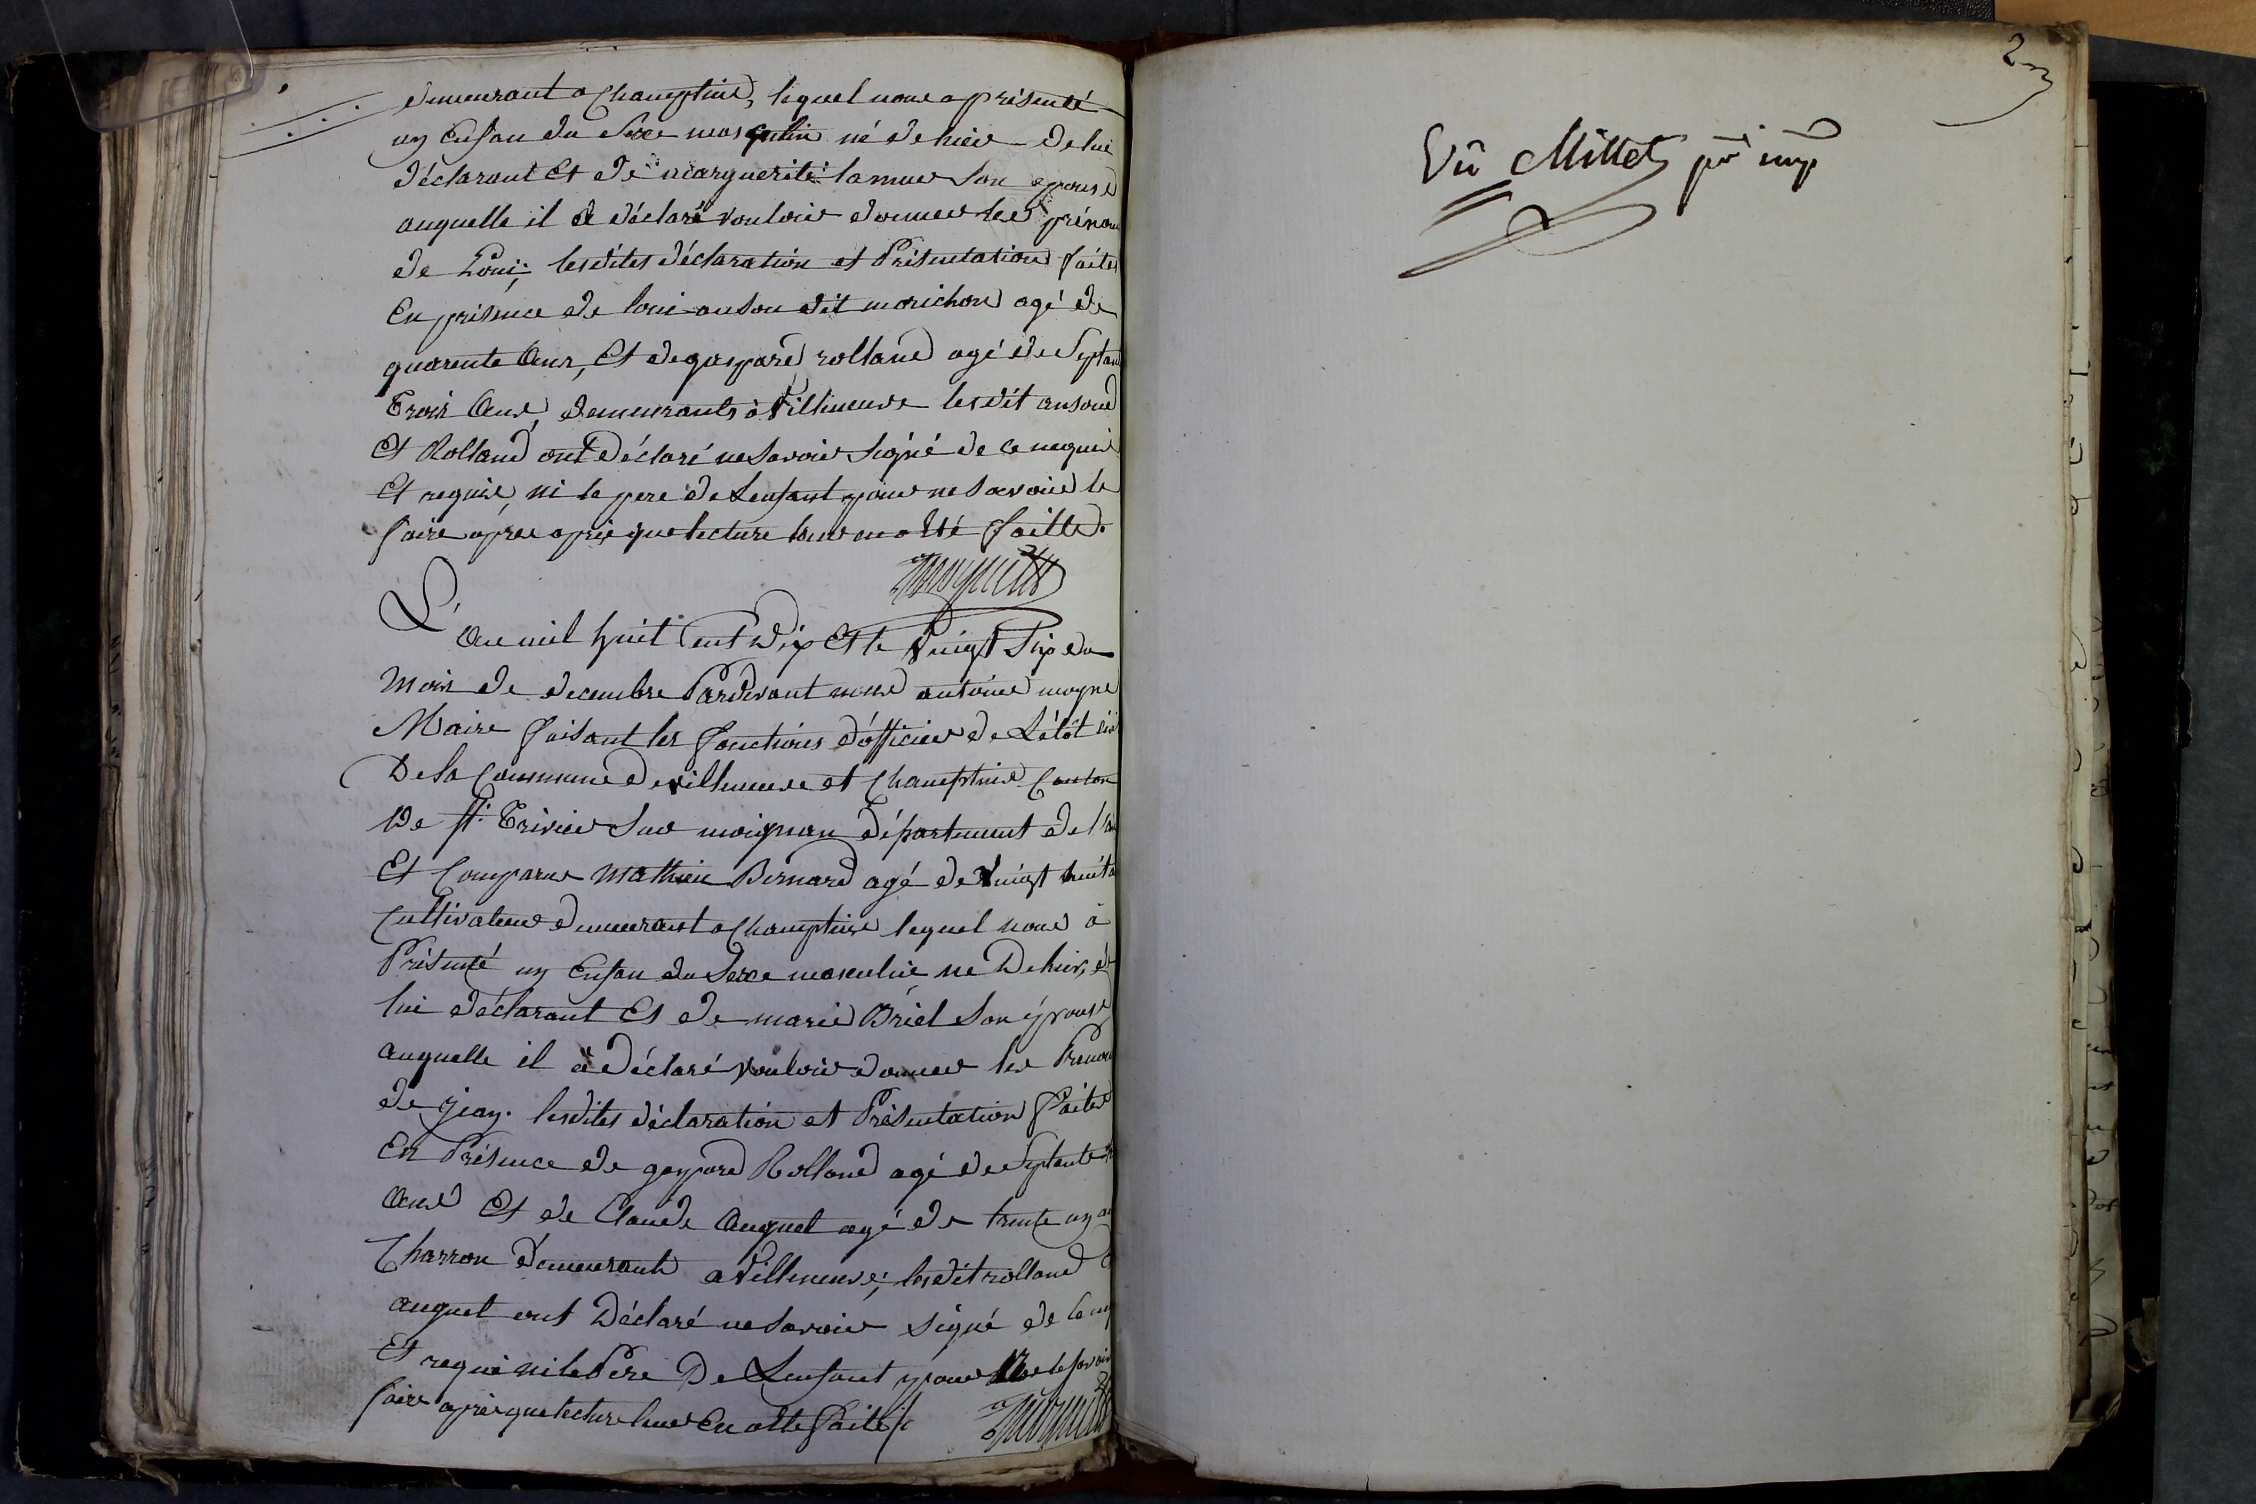 demeurant a Champtein, lequel nous a présenté
un Enfan du Sexe masqulin né de hier de lui
déclarant Et de marguerite lamure son epouse
auquelle il a déclaré vouloir donner les prénom
de Loui; lesdites déclaration et Présentation faites
En présence de loui anson dit morichon agé de
quarente Ans, Et de gaspard rolland agé de Septan
Trois Ans, demeurants à Villeneuve lesdit anson
Et Rolland ont Déclaré ne savoir signé de ce
Et requis, ni le pere de Lenfant pour ne savoir le
faire apres aprie que lecture leur en a été faitte.
L'
An mil huit Cent Dix Et le vingt Six du
Mois de decembre Pardevant nous antoine moyne
Maire faisant les fonctions d'officier de L'état civ
De la Commune de villeneuve et Champtein Canton
De St. Trivier Sur moignan département de l'a
Et Comparu Mathieu Bernard agé de vingt huit a
Cultivateur demeurant a Champtein lequel nous à
Présenté un Enfan du Sexe masculin ne De hier, de
lui déclarant Et de marie Briel Son épouse
auquelle il à déclaré vouloir donner les Prenom
de jean. lesdites déclaration et Présentation faites
En Présence de gaspard Rolland agé de Septante
Ans Et de Claude Auquel agé de trente un an
Charron demeurants a Villeneuve; lesdit rolland
auquel ont Déclaré ne savoir signé de ce
Et requi ni le Pere De Lenfant pour Ne le savoir
faire aprés que lecture leur En a été faite
2
Vû Millet pr. imp